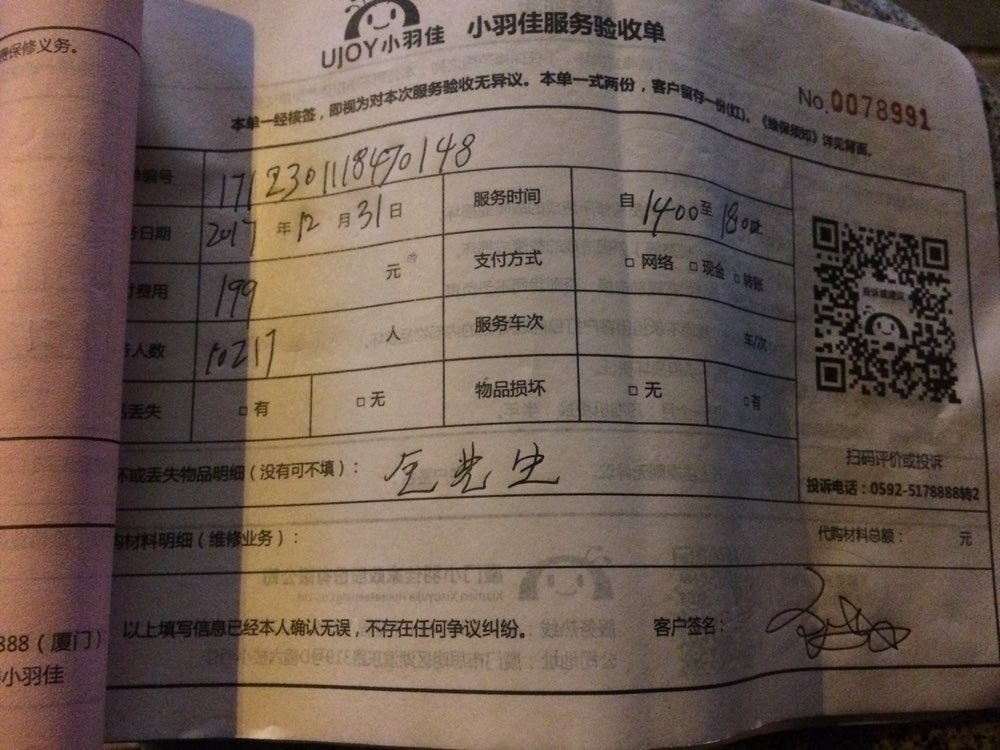 费保修义务。
UJOY小羽佳 小羽佳服务验收单
本单一经接签，即视为对本次服务验收无异议。本单一式两份，客户留存一份(红)。《维保须知》详见背面。
No.0078991
单编号 1712301118470148
务日期 2017 年 12 月 31 日 服务时间 自 1400 至 1800止
付费用 199 元 支付方式 □ 网络 □ 现金 □ 转账
务人数 10217 人 服务车次 车/次
品丢失 □ 有 □ 无 物品损坏 □ 无 □ 有
坏或丢失物品明细（没有可不填）： 全先生
扫码评价或投诉
投诉电话：0592-5178888转2
购材料明细（维修业务）： 代购材料总额： 元
以上填写信息已经本人确认无误，不存在任何争议纠纷。 客户签名：
888（厦门）
小羽佳